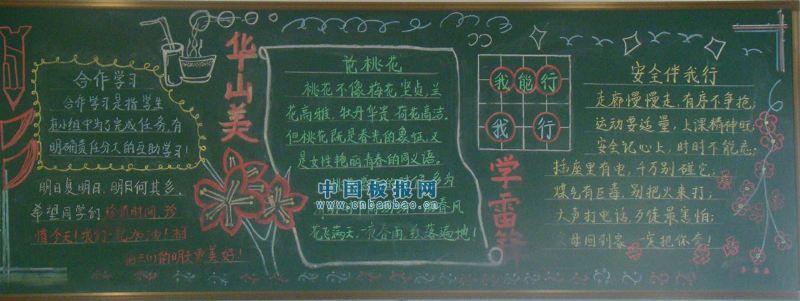 合作学习
合作学习是指学生
在小组中为了完成任务,有
明确责任分工的互助学习!
明日复明日,明日何其多。
希望同学们珍惜时间,珍
惜今天!我们一起加油!相
们的明天更美好!
华山美
说桃花
桃花不像梅花坚贞,兰
花高雅,牡丹华贵,荷花高洁.
但桃花既是春光的象征,又
是女性艳丽青春的同义语。
春风
花飞满天 落遍地!
中国板报网
www.cnbanbao.cn
我能行
我 行
学雷锋
安全伴我行
走廊慢慢走,有序不争抢;
运动要适量,上课精神旺;
安全记心上,时时不能忘;
插座里有电,千万别碰它;
煤气有巨毒,别把火来打,
大声打电话,歹徒最害怕;
父母回到家 定把你夸!